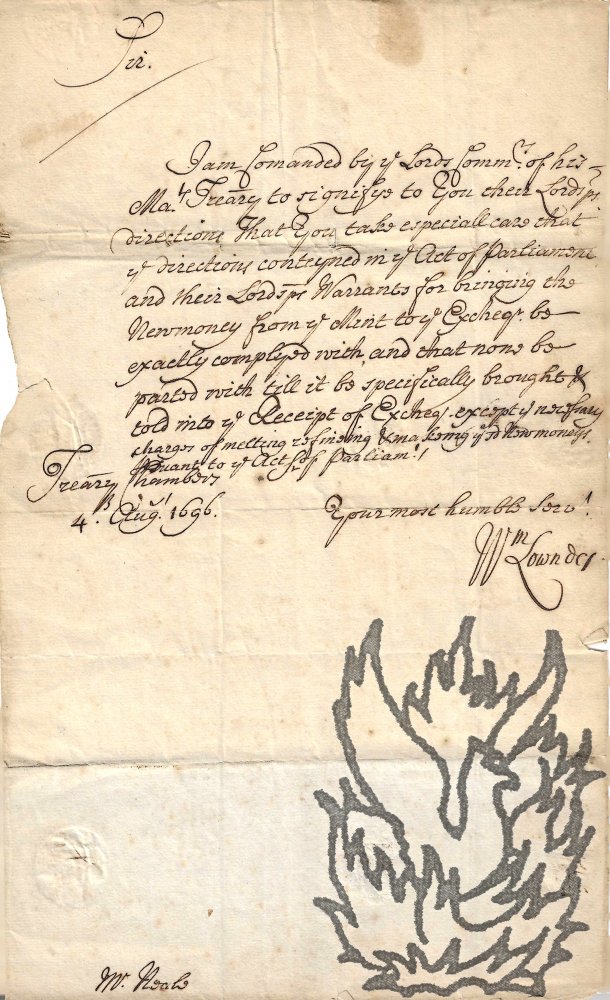 Sir.
I am Comanded by yͤ Lords Commʳˢ. of his
Maᵗˢ Treãry to signifye to You their Lordsᵖˢ
directions That You take especiall care that
yͤ directions conteyned in yͤ Act of Parliament
and their Lordsᵖˢ Warrants for bringing the
Newmoney from yͤ Mint to yͤ Excheqʳ. be
exactly complyed with and that none be
parted with till it be specifically brought &
told into yͤ Receipt of Excheqʳ. except yͤ necessary
charges of melting refineing & makeing yͤ sd Newmoneys
psuant to yͤ Act of Parliamᵗ.
Treãry Chambers
4ᵗʰ Augˢᵗ. 1696.
Your most humble Servᵗ.
Wᵐ Lowndes
Mʳ. Neale